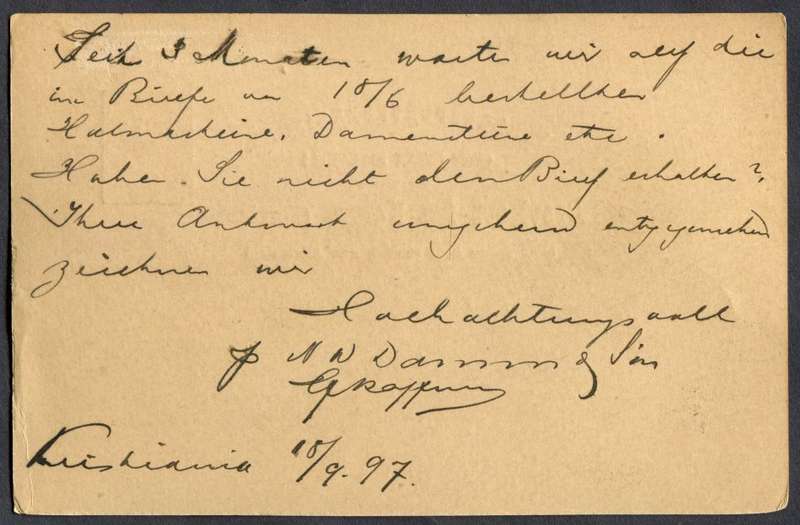 Seit 3 Monaten warten wir auf die
im Briefe von 18/6 bestellten
Damen etc.
Haben Sie nicht den Brief erhalten?
Ihrer Antwort umgehend entgegensehend
zeichnen wir
Hochachtungsvoll
p N W Damm & Søn
Kristiania 18/9. 97.